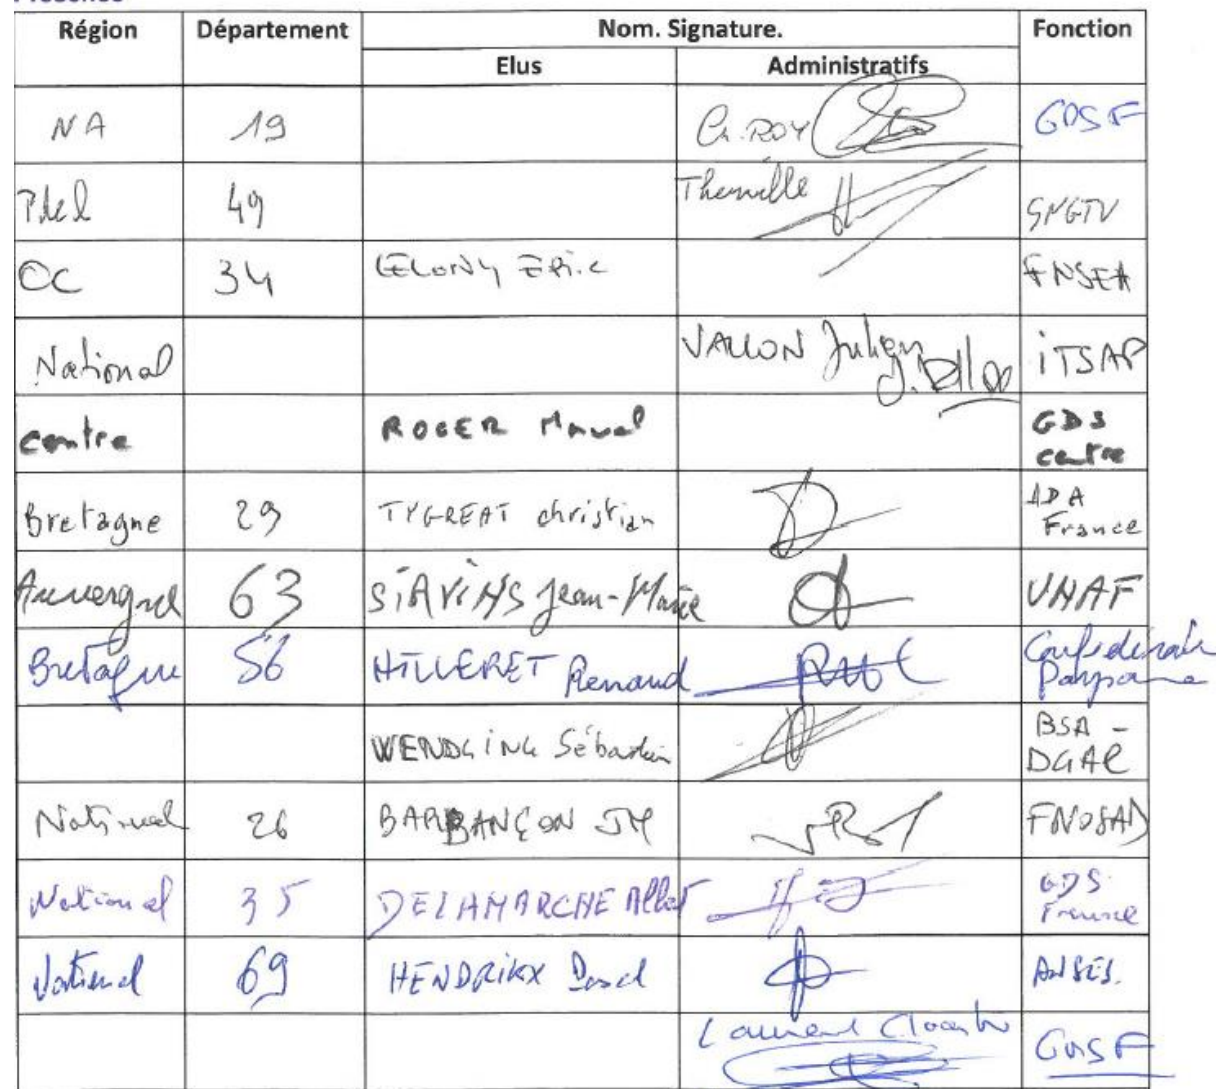 Région Département Nom. Signature. Fonction
Elus Administratifs
NA 19 Ch. ROY GDSF
Pdel 49 SNGTV
OC 34 LELONY ERic FNSEA
National VALLON Julien iTSAP
centre ROGER Manuel GDS centre
Bretagne 29 TYGREAT christian ADA France
Auvergne 63 SiAViNS Jean-Marie UNAF
Bretagne 56 HILLERET Renaud Confédération Paysanne
WENDLING Sébastien BSA - DGAL
National 26 BARBANÇON JM FNOSAD
National 35 DELAMARCHE GDS France
National 69 HENDRIKX ANSES.
Laurent GDSF